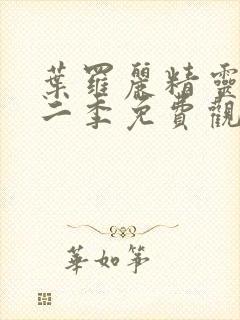 葉羅麗精靈
二季免費觀
華如筝